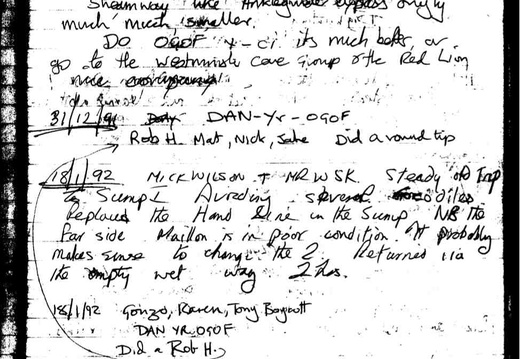 much much smaller.
Do OGOF y-ci its much better or
go to the Westminster Cave Group & the Red Lion
31/12/91 DAN-Yr-OGOF
Rob H. Mat, Nick, Jake Did a round trip
18/1/92 MICK WILSON + MR WSK Steady old Trip
To Sump I Avoiding several
Replaced the Hand Line in the Sump NB The
Far side Maillon is in poor condition. It probably
makes sense to change the 2. Returned via
the empty wet way 2 hrs.
18/1/92 Gonzo, Raven, Tony Baycott
DAN YR OGOF
Did a Rob H.